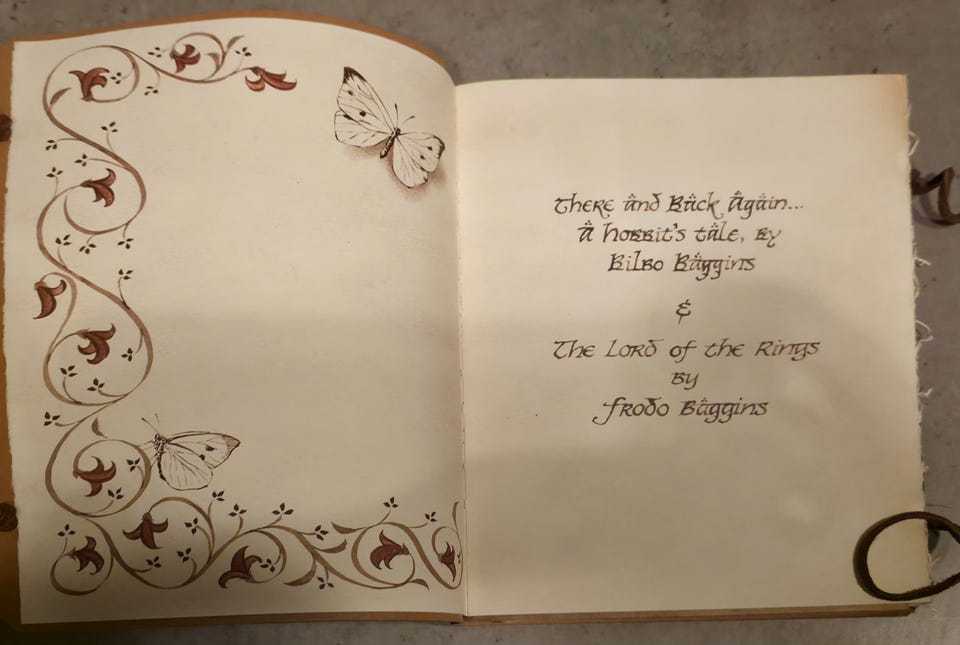 There and Back Again...
A hobbit's tale, by
Bilbo Baggins
&
The Lord of the Rings
by
Frodo Baggins